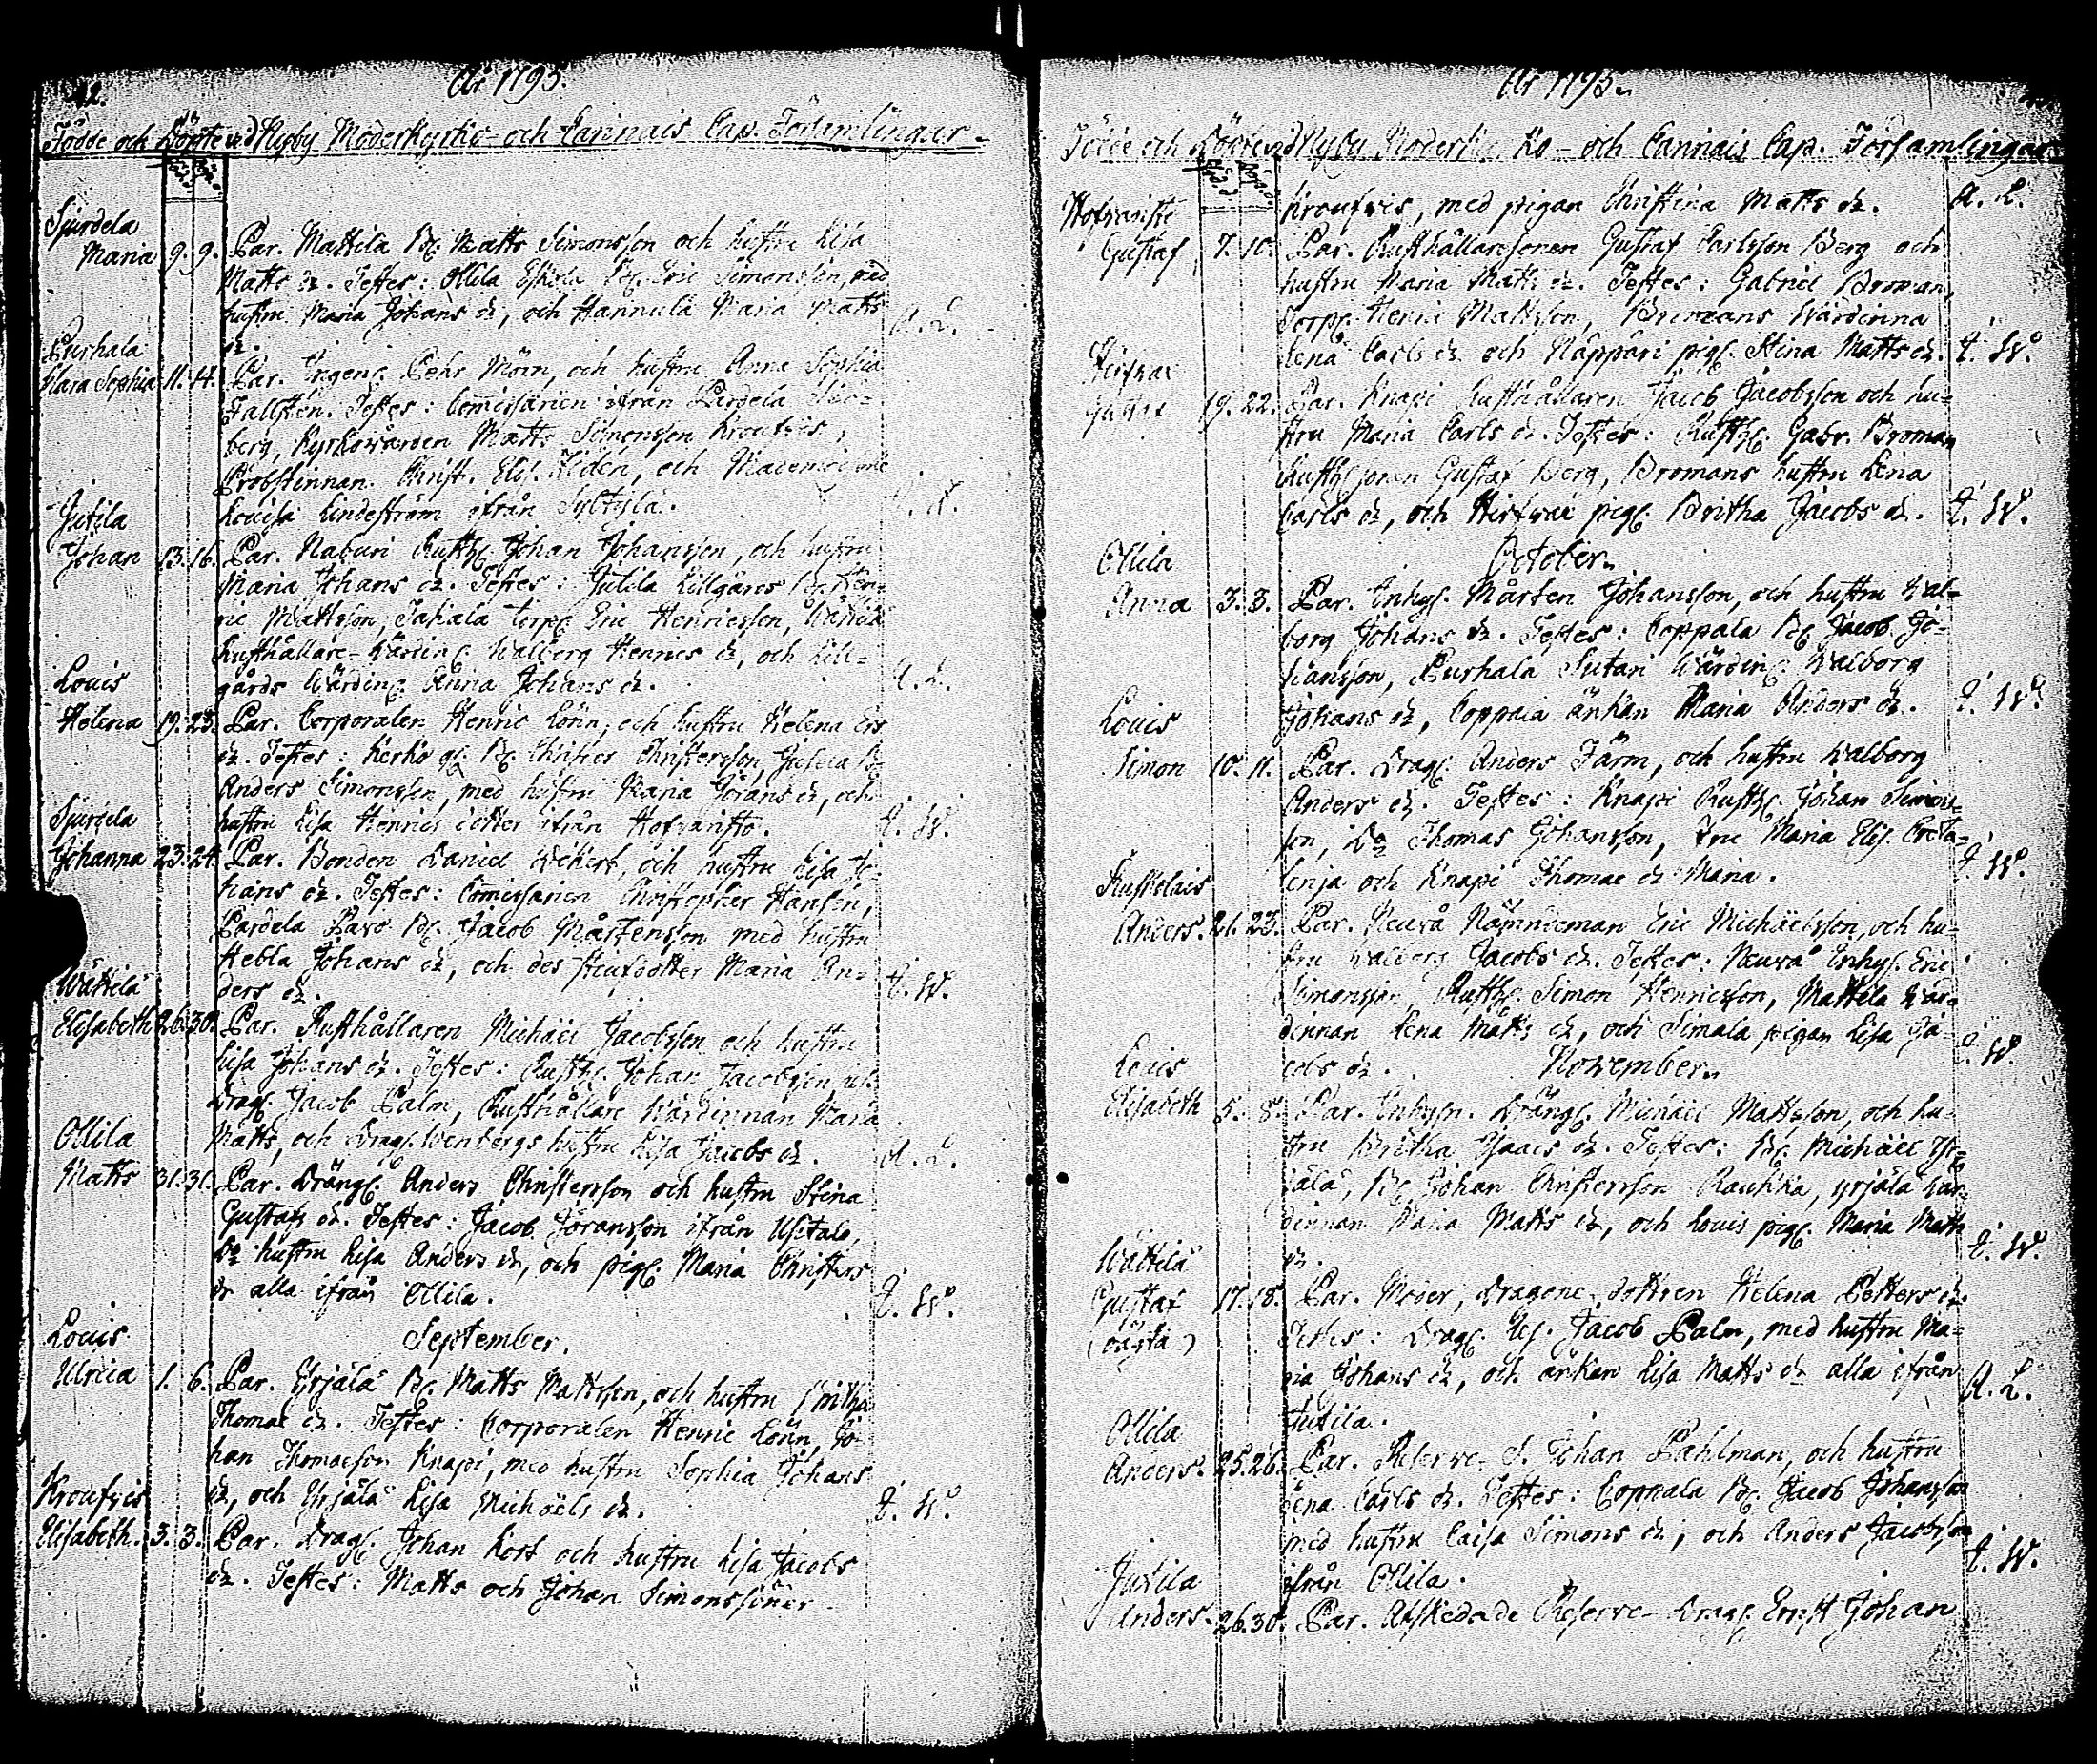 År 1795.
Födde och Döpte vid Nyby Moderkyrko- och Cannais Cap. Församlingar.
Sjurdela
Maria 9. 9. Par. Mattila Bd. Matts Simonsson och hustru Lisa
Matts dr. Testes: Ollila Eskola Bd. Eric Simonsson, med
hustru Maria Johans dr, och Hannula Maria Matts
dr. A. L.
Purhala
Clara Sophia 11. 14. Par. Pehr Mörn, och hustru Anna Sophia
Fallstén. Testes: Comissarien ifrån Pardela Sve-
berg, Kyrkowärden Matts Simonsson Kroufvis,
Probstinnan Christ. Elis. Lidén, och Mademoiselle
Lovisa Lindeström ifrån
Jutila
Johan 13. 16. Par. Naburi Rusth. Johan Johansson, och hustru
Maria Johans dr. Testes: Jutila Lillgårds Bd. Hen-
ric Mattsson, Jahala torp. Eric Henricsson, Wättilä
Rusthållare-Wärdin. Walborg Henrics dr, och Lill-
gårds Wärdin. Anna Johans dr. A. L.
Louis
Helena 19. 23. Par. Corporalen Henric Lönn, och hustru Helena Ers
dr. Testes: Christer Christersson, Jutila
Anders Simonsson, med hustru Maria Jörans dr, och
hustru Lisa Henrics dotter ifrån Hofvanisto. E. W.
Sjurdela
Johanna 23. 24. Par. Bonden Daniel och hustru Lisa Jo-
hans dr. Testes: Comissarien Christopher Hansén,
Pardela Pavo Bd. Jacob Mårtensson med hustru
Hebla Johans dr, och des Stiufdotter Maria An-
ders dr. E. W.
Wättilä
Elisabeth 26. 30. Par. Rusthållaren Michäel Jacobsson och hustru
Lisa Johans dr. Testes: Rusth. Johan Jacobsson
Drag. Jacob Palm, Rusthållare Wärdinnan Maria
Matts, och Drag. Wenbergs hustru Lisa Jacobs dr. A. L.
Ollila
Matts 31. 31. Par. Dräng. Anders Christersson och hustru Stina
Gustafs dr. Testes: Jacob Jöransson ifrån Usitalo,
Do hustru Lisa Anders dr, och pig. Maria Christers
dr alla ifrån Ollila. E. W.
September.
Louis
Ulrica 1. 6. Par. Yrjälä Bd. Matts Mattsson, och hustru Britha
Thomae dr. Testes: Corporalen Henric Lönn, Jo-
han Thomaesson Knapi, med hustru Sophia Johans
dr, och Yrjälä Lisa Michaëls dr. E. W.
Kroufvis
Elisabeth. 3. 3. Par. Drag. Johan Kort och hustru Lisa Jacobs
dr. Testes: Matts och Johan Simonssöner
År 1795.
Födde och Döpte vid Nyby Moderkyrko- och Cannais Cap. Församlingar
Kroufvis, med pigan Christina Matts dr. A. L.
Hofvanisto
Gustaf 7. 10. Par. Rusthållaresonen Gustaf Carlsson Berg och
hustru Maria Matts dr. Testes: Gabriel Broman,
Torp. Henric Mattsson, Bromans Wärdinna
Lena Carls dr och Näppäri pig. Stina Matts dr. E. W.
Hirfvax
Gustaf 19. 22. Par. Knapi Rusthållaren Jacob Jacobsson och hu-
stru Maria Carls dr. Testes: Rusth. Gabr. Broman
Rusth. sonen Gustaf Berg, Bromans hustru Lena
Carls dr, och Hirfvax pig. Britha Jacobs dr. E. W.
October.
Ollila
Anna 3. 3. Par. Inhys. Mårten Johansson, och hustru Wal-
borg Johans dr. Testes: Coppala Bd. Jacob Jo-
hansson, Purhala Sutari Wärdin. Walborg
Johans dr, Coppala änkan Maria Anders dr. E. W.
Louis
Simon 10. 11. Par. Drag. Anders Färm, och hustru Walborg
Anders dr. Testes: Knapi Rusth. Johan Simons-
son, Do Thomas Johansson, Fru Maria Elis.
och Knapi Thomae dr Maria. E. W.
Ruskolais
Anders. 21. 23. Par. Neuvå Nämndeman Eric Michäelsson, och hu-
stru Walborg Jacobs dr. Testes: Neuvå Inhys. Eric
Simonsson, Rusth. Simon Henricsson, Mattila Wär-
dinnan Lena Matts dr, och Simala pigan Lisa Ja-
cobs dr. E. W.
November.
Louis
Elisabeth 5. 8. Par. Inhysn. Dräng. Michäel Mattsson, och hu-
stru Britha Isaacs dr. Testes: Bd. Michäel Yr-
jälä, Bd. Johan Christersson Rautika, Yrjälä Wär-
dinnan Maria Matts dr, och Louis pig. Maria Matts
dr. E. W.
Wättilä
Gustaf 17. 18. Par. Moder, Dragone-dottren Helena Petters dr.
(oägta) Testes: Drag. Jacob Palm, med hustru Ma-
ria Johans dr, och änkan Lisa Matts dr alla ifrån
Jutila. A. L.
Ollila
Anders. 25. 26. Par. Reserve-d. Johan Pahlman, och hustru
Lena Carls dr. Testes: Coppala Bd. Jacob Johansson
med hustru Caisa Simons dr, och Anders Jacobsson
ifrån Ollila. E. W.
Jutila
Anders. 26. 30. Par. Afskedade Reserve-Drag. Ernst Johan